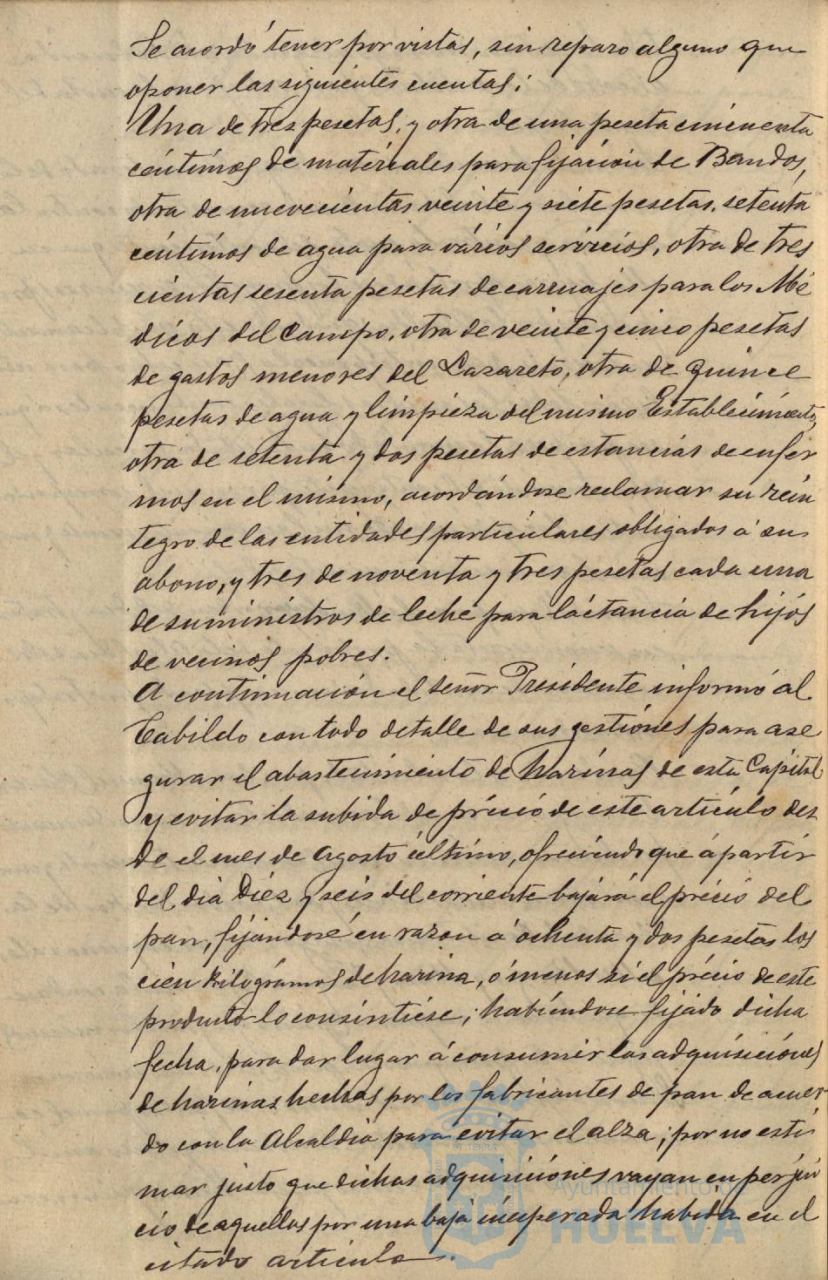 Se acordó tener por vistas, sin reparo alguno que
oponer las siguientes cuentas;
Una de tres pesetas, y otra de una peseta cincuenta
céntimos de materiales para fijación de Bandos,
otra de nuevecientas veinte y siete pesetas, setenta
céntimos de agua para vários servicios, otra de tres
cientas sesenta pesetas de carruajes para los Mé
dicos del Campo, otra de veinte y cinco pesetas
de gastos menores del Lazareto, otra de quince
pesetas de agua y limpieza del mismo Establecimiento,
otra de setenta y dos pesetas de estancias de enfer
mos en el mismo, acordándose reclamar su rein
tegro de las entidades particulares obligados á su
abono, y tres de noventa y tres pesetas cada una
de suministros de leche para láctancia de hijos
de vecinos pobres.
A continuación el señor Presidente informó al
Cabildo con todo detalle de sus gestiones para ase
gurar el abastecimiento de harinas de esta Capital
y evitar la subida de précio de este artículo des
de el mes de Agosto último, ofreciendo que á partir
del dia diez y seis del corriente bajará el précio del
pan, fijándosé en razon á ochenta y dos pesetas los
cien kilográmos de harina, ó menos si el précio de este
producto lo consintiése; habiéndose fijado dicha
fecha, para dar lugar á consumir las adquisiciónes
de harinas hechas por los fabricantes de pan de acuer
do con la Alcaldia para evitar el alza; por no esti
mar justo que dichas adquisiciónes vayan en perjui
cio de aquellos por una baja inesperada habida en el
citado articulo.
Ayuntamiento de
HUELVA